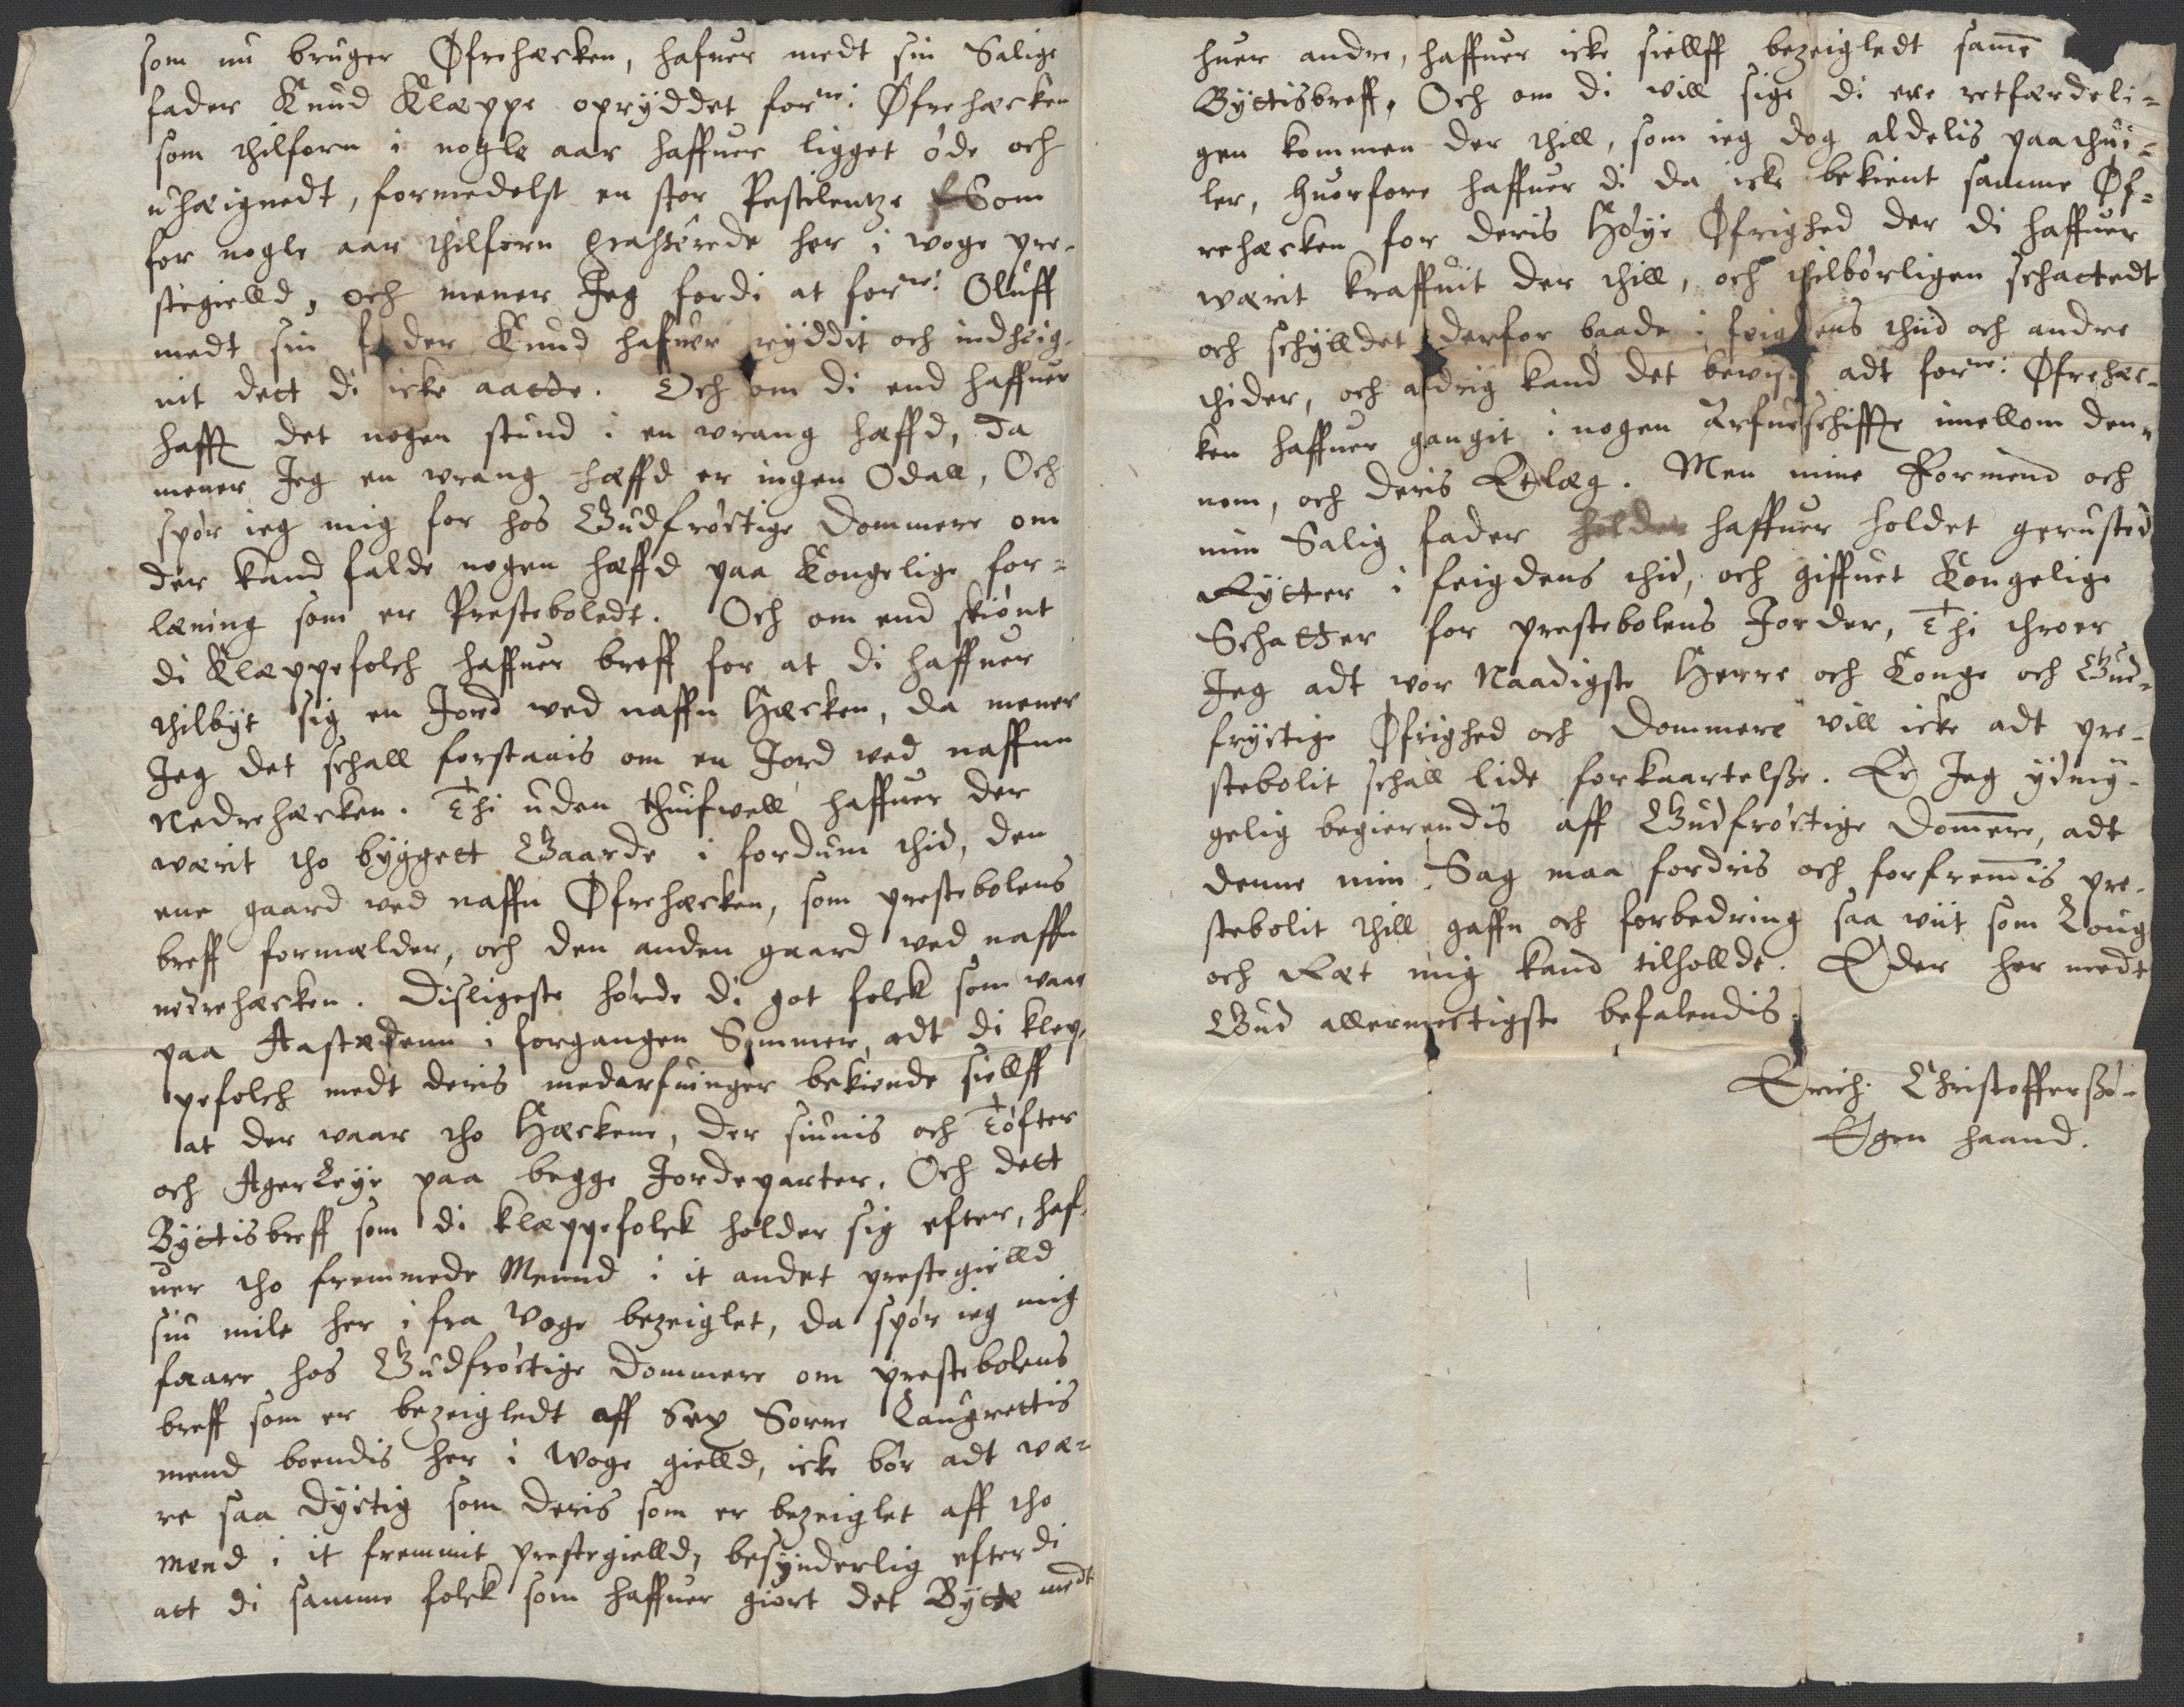 som nu bruger Øfrehæcken, hafuer medt sin Salige
fader Knud Klæppe opryddet forne: Øfrehæcken
som thilforn i nogle aar haffuer ligget øde och
uhæignedt, formedelst en stor Pestilentze Som
for nogle aar thilforn grahserede her i woge pre-
stegielld, och mener Jeg fordi at forne: Oluff
medt sin fader Knud hafuer ryddit och indheig-
nit dett di icke aatte. Och om di end haffuer
hafft det nogen stund i en wrang hæffd, da
mener Jeg en wrang hæffd er ingen Odall, Och
spør ieg mig for hos Gudfrøctige Dommere om
der kand falde nogen hæffd paa Kongelige for=
læning som er Presteboledt. Och om end skiønt
di Klæppefolch haffuer breff for at di haffuer
thilbyt sig en Jord wed naffn Hæcken, da mener
Jeg det schall forstaais om en Jord wed naffnn
Nedrehæcken. Thi uden thuifwell haffuer der
wærit tho byggett Gaarde i fordum thid, den
ene gaard wed naffn Øfrehæcken, som prestebolens
breff formælder, och den anden gaard wed naffn
nedrehæcken. Disligeste hørde di got folck som waar
paa Aastædenn i forgangen Sommer, adt di klep-
pefolch medt deris medarfuinger bekiende siellff
at der waar tho Hæckene, der siunis och Tøfter
och Agerleye paa begge Jordeparter. Och dett
Byttisbreff som di klæppefolck holder sig efter, haf-
uer tho fremmede Mennd i it andet prestegielld
siu mile her i fra Woge bezeiglet, da spør ieg mig
faare hos Gudfrøctige Dommere om prestebolens
breff som er bezeigledt aff Sex Sorne Laugrettis
mend boendis her i Woge gielld, icke bør adt væ=
re saa dyctig som deris som er bezeiglet aff tho
mend i it fremmit prestegielld, besynderlig efterdi
att di samme folck som haffuer giort det Bytte medt
huer andre, haffuer icke siellff bezeigledt samme
Byttisbreff. Och om di will sige di ere retfærdeli=
gen kommen der thill, som ieg dog aldelis paathui=
ler, huorfore haffuer di da icke bekient samme Øf=
rehæcken for deris Høye Øfrighed der di haffuer
wærit kraffuit der thill, och thilbørligen schactedt
och schylldet derfor baade i feigdens thid och andre
thider, och aldrig kand det bewises adt forne: Øfrehæc-
ken haffuer gangit i nogen Arfueschiffte imellom den-
nom, och deris Etlæg. Men mine Formend och
min Salig fader haffuer holdet gerusted
Rytter i feigdens thid, och giffuet Kongelige
Schatter for prestebolens Jorder, Thi throer
Jeg adt wor Naadigste Herre och Konge och Gud=
fryctige Øfrighed och Dommere will icke adt pre-
stebolit schall lide forkaartelsse. Er Jeg ydmy-
gelig begierendis aff Gudfrøctige Dommere, adt
denne min Sag maa fordris och forfremmis pre-
stebolit thill gaffn och forbedring saa wiit som Loug
och Ræt mig kand tilhollde. Eder her medt
Gud allermectigste befalendis.
Erich Christofferssø-
Egen haand.